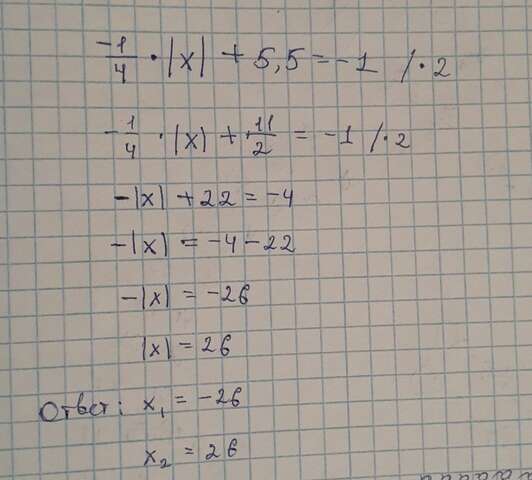 -1/4 · |x| + 5,5 = -1 /· 2
-1/4 · |x| + 11/2 = -1 /· 2
-|x| + 22 = -4
-|x| = -4 - 22
-|x| = -26
|x| = 26
Ответ: x₁ = -26
x₂ = 26